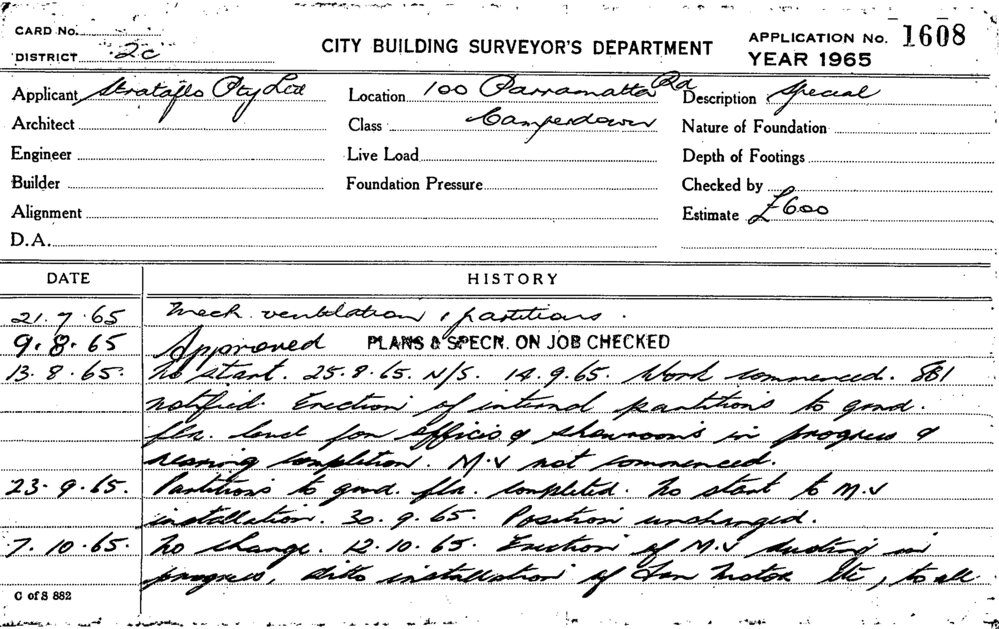 CARD No.
DISTRICT 2c
CITY BUILDING SURVEYOR'S DEPARTMENT
APPLICATION No. 1608
YEAR 1965
Applicant Strataflo Pty Ltd Location 100 Parramatta Rd Description Special
Architect Class Camperdown Nature of Foundation
Engineer Live Load Depth of Footings
Builder Foundation Pressure Checked by
Alignment Estimate £600
D.A.
DATE HISTORY
21.7.65 Mech. ventilation & partitions.
9.8.65 Approved PLANS & SPECN. ON JOB CHECKED
13.8.65. No start. 25.8.65. N/S. 14.9.65. Work commenced. SBI
notified. Erection of internal partitions to grnd.
flr. level for offices & showrooms in progress &
nearing completion. M.V not commenced.
23.9.65. Partitions to grnd. flr. completed. No start to M.V
installation. 30.9.65. Position unchanged.
7.10.65. No change. 12.10.65. Erection of M.V ducting in
progress, ditto installation of Fan Motor Etc, to all
C of S 882